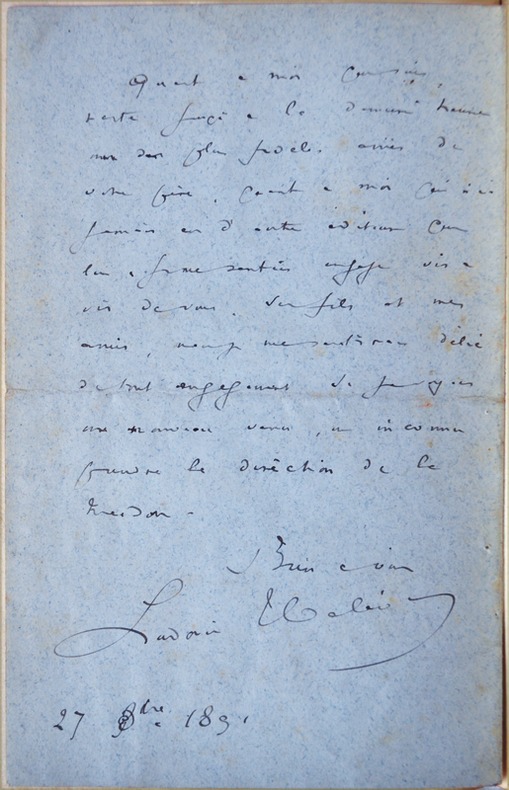 Quant à moi
reste jusqu'à la dernière heure
un des plus fidèles amis de
votre père. Quant à moi qui n'ai
jamais eu d'autre éditeur que
lui, je me sentais engagé vis à
vis de vous, ses fils et mes
amis, mais je me sentirais délié
de tout engagement si je voyais
un nouveau venu, un inconnu
prendre la direction de la
maison.
Bien à vous
Ludovic Halévy
27 8bre 1891